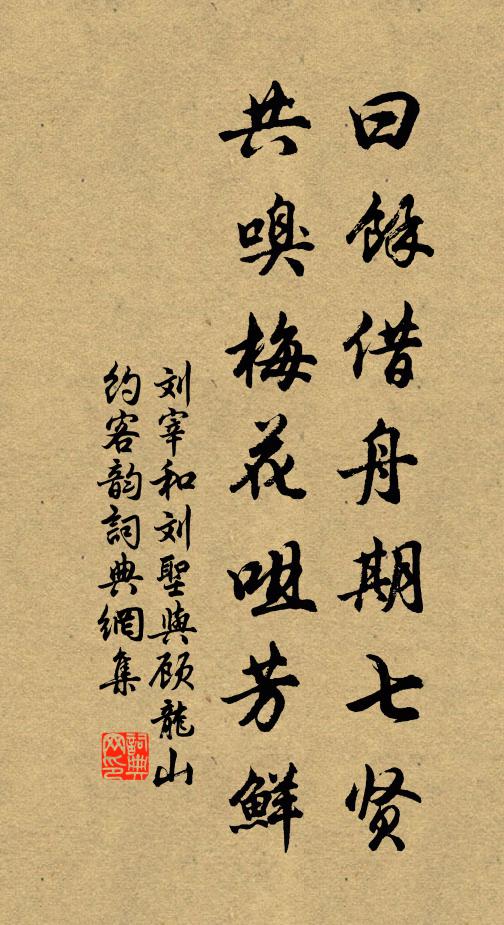 曰馀借舟期七贤
共嗅梅花咀芳鲜
刘宰和刘圣与顾龙山
约客韵词典网集
词典网印